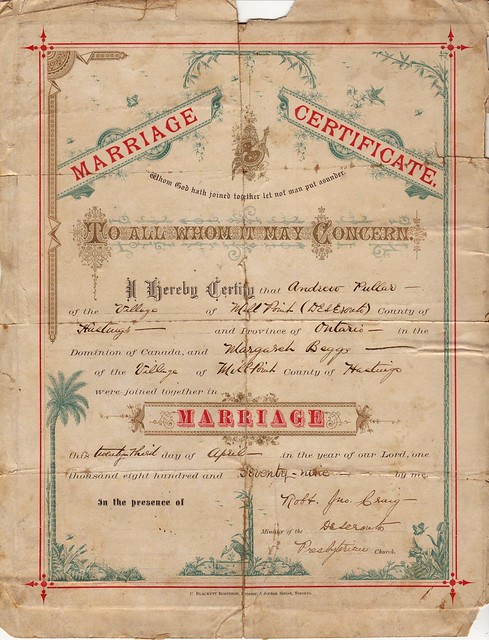 MARRIAGE CERTIFICATE.
Whom God hath joined together let not man put asunder.
TO ALL WHOM IT MAY CONCERN.
I Hereby Certify that Andrew Fuller
of the Village of Mill Point (Deseronto) County of
Hastings and Province of Ontario in the
Dominion of Canada, and Margaret Beggs
of the Village of Mill Point County of Hastings
were joined together in
MARRIAGE
this twenty third day of April in the year of our Lord, one
thousand eight hundred and Seventy-nine by me,
In the presence of
Robt. Jno. Craig
Minister of the Deseronto
Presbyterian Church.
C. Blackett Robinson, Printer, 5 Jordan Street, Toronto.